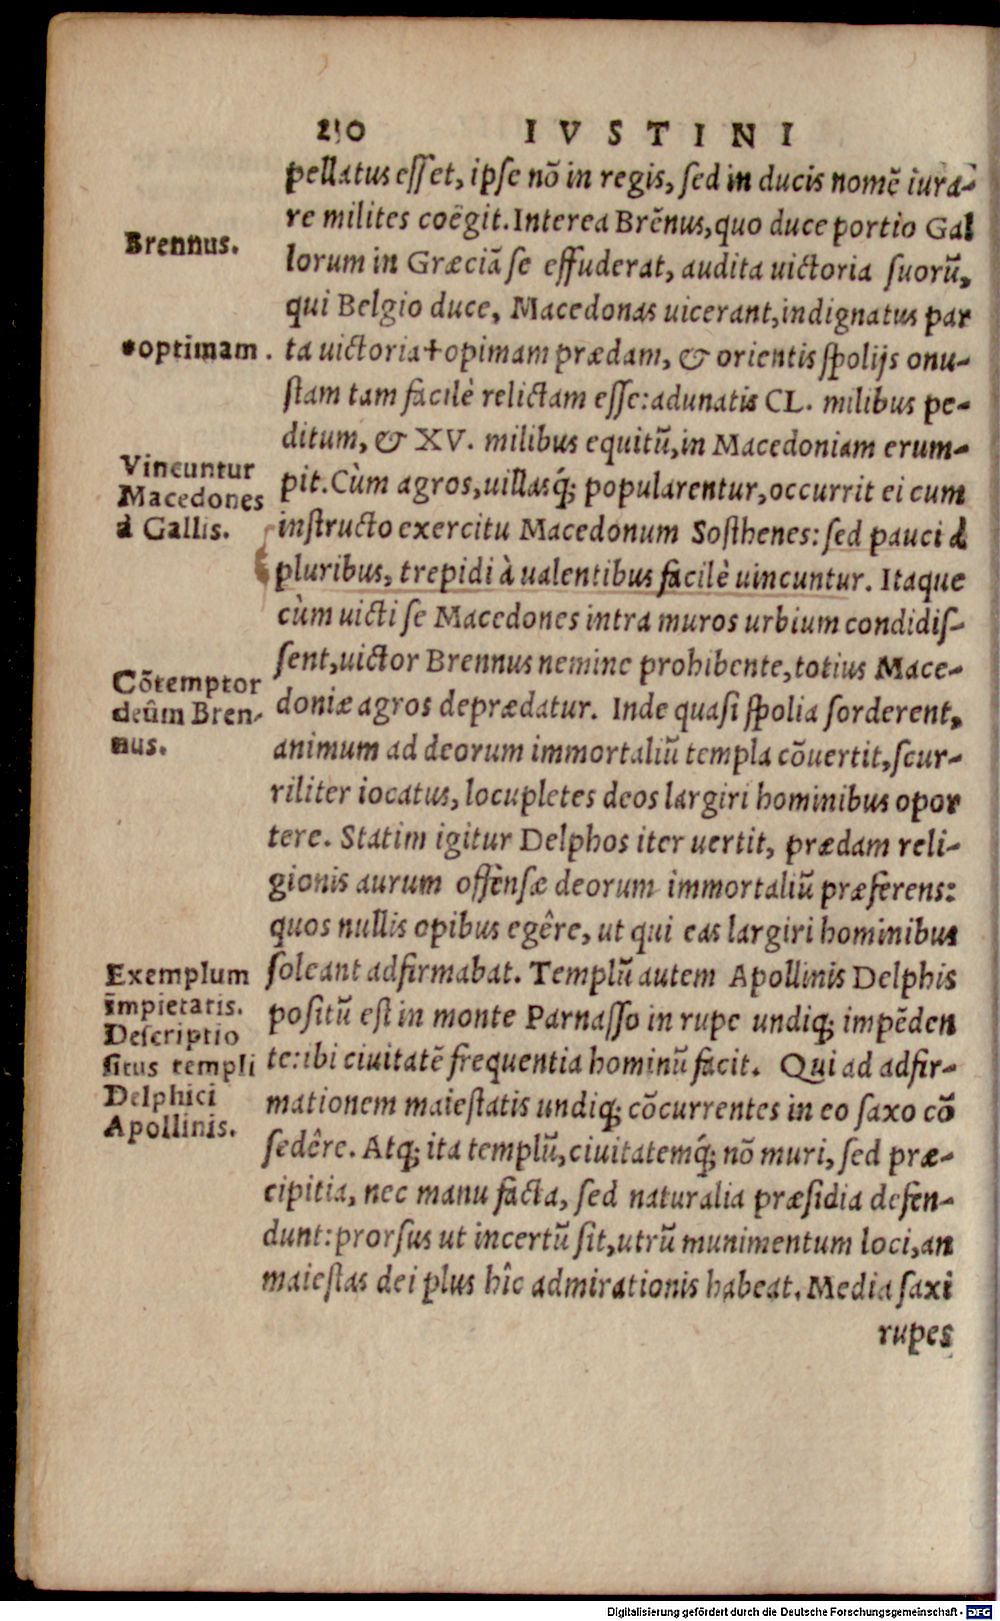 210 IVSTINI
pellatus esset, ipse nõ in regis, sed in ducis nomẽ iura-
re milites coëgit. Interea Brẽnus, quo duce portio Gal
lorum in Græciã se effuderat, audita uictoria suorũ,
qui Belgio duce, Macedonas uicerant, indignatus par
ta uictoria + opimam prædam, & orientis spolijs onu-
stam tam facilè relictam esse: adunatis CL. milibus pe-
ditum, & XV. milibus equitũ, in Macedoniam erum-
pit. Cùm agros, uillasq́; popularentur, occurrit ei cum
instructo exercitu Macedonum Sosthenes: sed pauci à
pluribus, trepidi à ualentibus facilè uincuntur. Itaque
cùm uicti se Macedones intra muros urbium condidis-
sent, uictor Brennus nemine prohibente, totius Mace-
doniæ agros deprædatur. Inde quasi spolia sorderent,
animum ad deorum immortaliũ templa cõuertit, scur-
riliter iocatus, locupletes deos largiri hominibus opor
tere. Statim igitur Delphos iter uertit, prædam reli-
gionis aurum offensæ deorum immortaliũ præferens:
quos nullis opibus egêre, ut qui eas largiri hominibus
soleant adfirmabat. Templũ autem Apollinis Delphis
positũ est in monte Parnasso in rupe undiq; impẽden
te: ibi ciuitatẽ frequentia hominũ facit. Qui ad adfir-
mationem maiestatis undiq; cõcurrentes in eo saxo cõ
sedêre. Atq; ita templũ, ciuitatemq́; nõ muri, sed præ-
cipitia, nec manu facta, sed naturalia præsidia defen-
dunt: prorsus ut incertũ sit, utrũ munimentum loci, an
maiestas dei plus hîc admirationis habeat. Media saxi
rupes
Brennus.
*optimam.
Vincuntur
Macedones
à Gallis.
Cõtemptor
deûm Bren-
nus.
Exemplum
ĩmpietatis.
Descriptio
situs templi
Delphici
Apollinis.
Digitalisierung gefördert durch die Deutsche Forschungsgemeinschaft - DFG